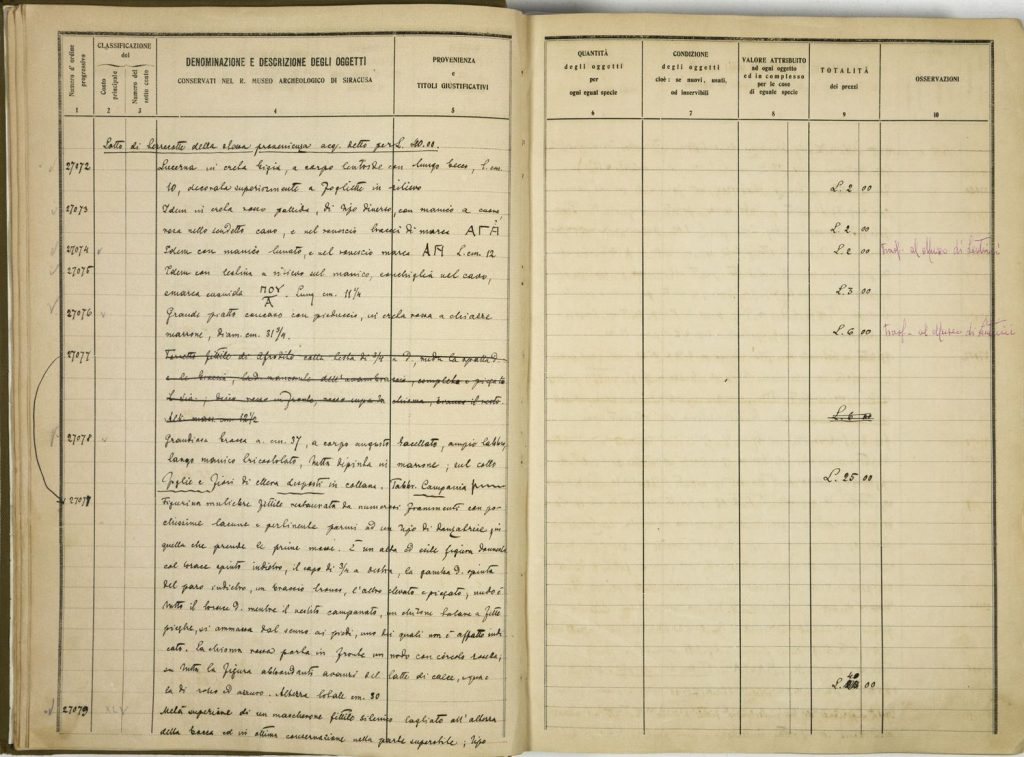 Numero d'ordine progressivo
CLASSIFICAZIONE del
Costo principale
Numero del sotto costo
DENOMINAZIONE E DESCRIZIONE DEGLI OGGETTI
CONSERVATI NEL R. MUSEO ARCHEOLOGICO DI SIRACUSA
PROVENIENZA
e
TITOLI GIUSTIFICATIVI
1 2 3 4 5
Lotto di terrecotte della stessa provenienza acq. detto per L.
27072 Lucerna in creta bigia, a corpo lentoide con lungo becco, l. cm.
10, decorata superiormente a fogliette in rilievo
27073 Idem in creta rosso pallida, di tipo diverso, con manico a cuore,
rosa nello scudetto cavo, e nel rovescio tracci di marca ΑΓΑ
27074 Idem con manico lunato, e nel rovescio marca L. cm. 12
27075 Idem con testina a rilievo sul manico, conchiglia nel cavo,
e marca ΠΟΥ
Α . Lung. cm. 11 1/2
27076 Grande piatto concavo con pieduccio, in creta rossa a chiazze
marrone, diam. cm. 31 3/4
27077 Torsetto fittile di Afrodite colla testa di 3/4 a D., nuda la spalla d
e le braccia, completo e piegato
Alt. mass. cm 12 1/2
27078 Grandiosa brocca a. cm. 37, a corpo angusto baccellato, ampio labbro,
lungo manico tricostolato, tutta dipinta in marrone; sul collo
foglie e fiori di ellera disposti in collana. Fabbr. Campania
27077 Figurina muliebre fittile restaurata da numerosi frammenti con po-
chissime lacune e pertinente parmi ad un tipo di danzatrice, in
quella che prende le prime mosse. È un alta ed esile figura donnesca
col torace spinto indietro, il capo di 3/4 a destra, la gamba D. spinta
del paro indietro, un braccio tronco, l'altro elevato e piegato; nudo è
tutto il torace D. mentre il vestito campanato, un chitone talare a fitte
pieghe, si ammassa dal seno ai piedi, uno dei quali non è affatto indi-
cato. La chioma rossa porta in fronte un nodo con cercolo rosetta;
su tutta la figura abbondanti avanzi del latte di calce,
di roseo ed azzurro. Altezza totale cm. 30
27079 XLV Metà superiore di un mascherone fittile silenico tagliato all'altezza
della bocca ed in ottima conservazione nella parte superstite; tipo
QUANTITÀ
degli oggetti
per
ogni egual specie
CONDIZIONE
degli oggetti
cioè: se nuovi, usati,
od inservibili
VALORE ATTRIBUITO
ad ogni oggetto
ed in complesso
per le cose
di eguale specie
TOTALITÀ
dei prezzi
OSSERVAZIONI
6 7 8 9 10
L. 2 00
L. 2. 00
L. 2 00 Trasf. al Museo di Lentini
L. 3 00
L. 6. 00 Trasf. al Museo di Lentini
L. 6 00
L. 25 00
L. 40 00